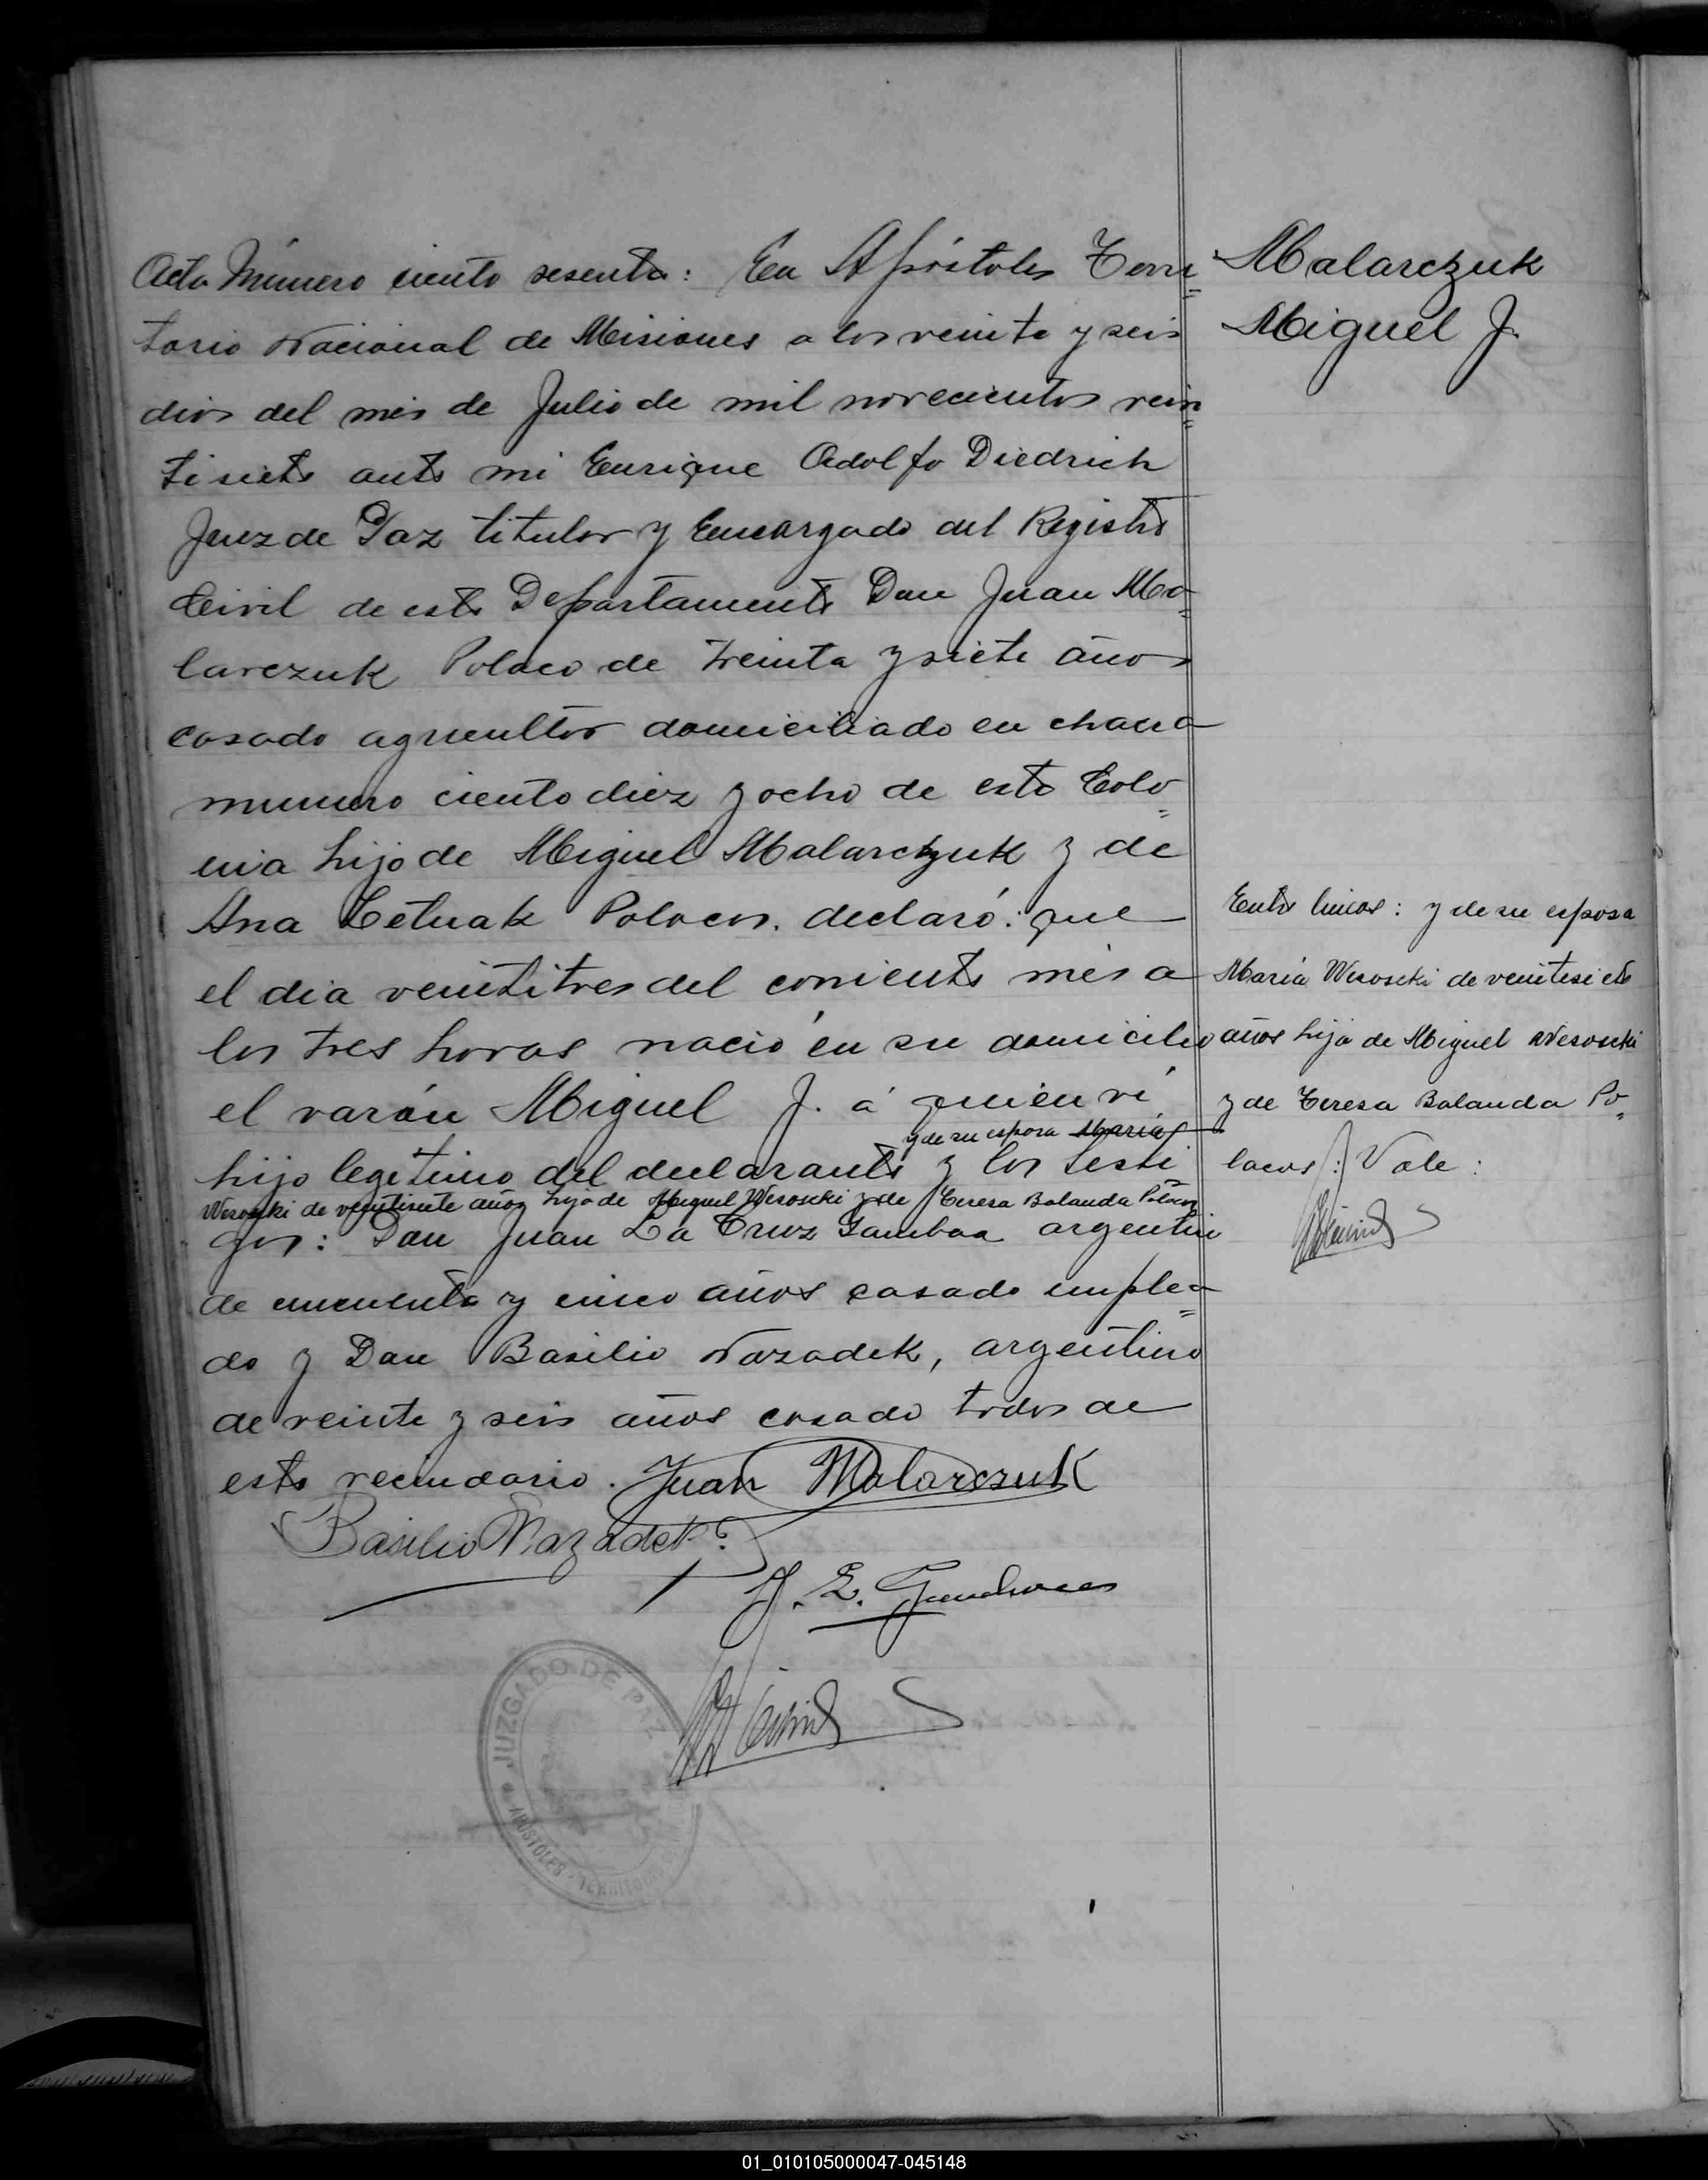 Acta Número ciento sesenta: En Apóstoles Terri
torio Nacional de Misiones a los veinte y seis
dias del mes de Julio de mil novecientos vein
tisiete ante mi Enrique Adolfo Diedrich
Juez de Paz titular y Encargado del Registro
Civil de este Departamento Don Juan Ma-
larczuk Polaco de treinta y siete años
casado agricultor domiciliado en chacra
numero ciento diez y ocho de esta Colo
nia hijo de Miguel Malarczuk y de
Ana Cetuak Polacos. declaró: que
el dia veintitres del corriente mes a
las tres horas nació en su domicilio
el varón Miguel J. á quien vi
y de su esposa María
hijo legitimo del declarante y los testi
Wisoscki de veintisiete años hija de Miguel Wisoscki y de Teresa Balanda Polacos
gos: Don Juan La Cruz Gamboa argentino
de cincuenta y cinco años casado emplea
do y Don Basilio Nazadek, argentino
de veinte y seis años casado todos de
este vecindario. Juan Malarczuk
Basilio Nazadek
J. L.
JUZGADO DE PAZ
APOSTOLES - TERRITORIO
Malarczuk
Miguel J.
Entre lineas: y de su esposa
María Wisoscki de veintisiete
años hija de Miguel Wesoscki
y de Teresa Balanda Po
lacos: Vale:
01_010105000047-045148